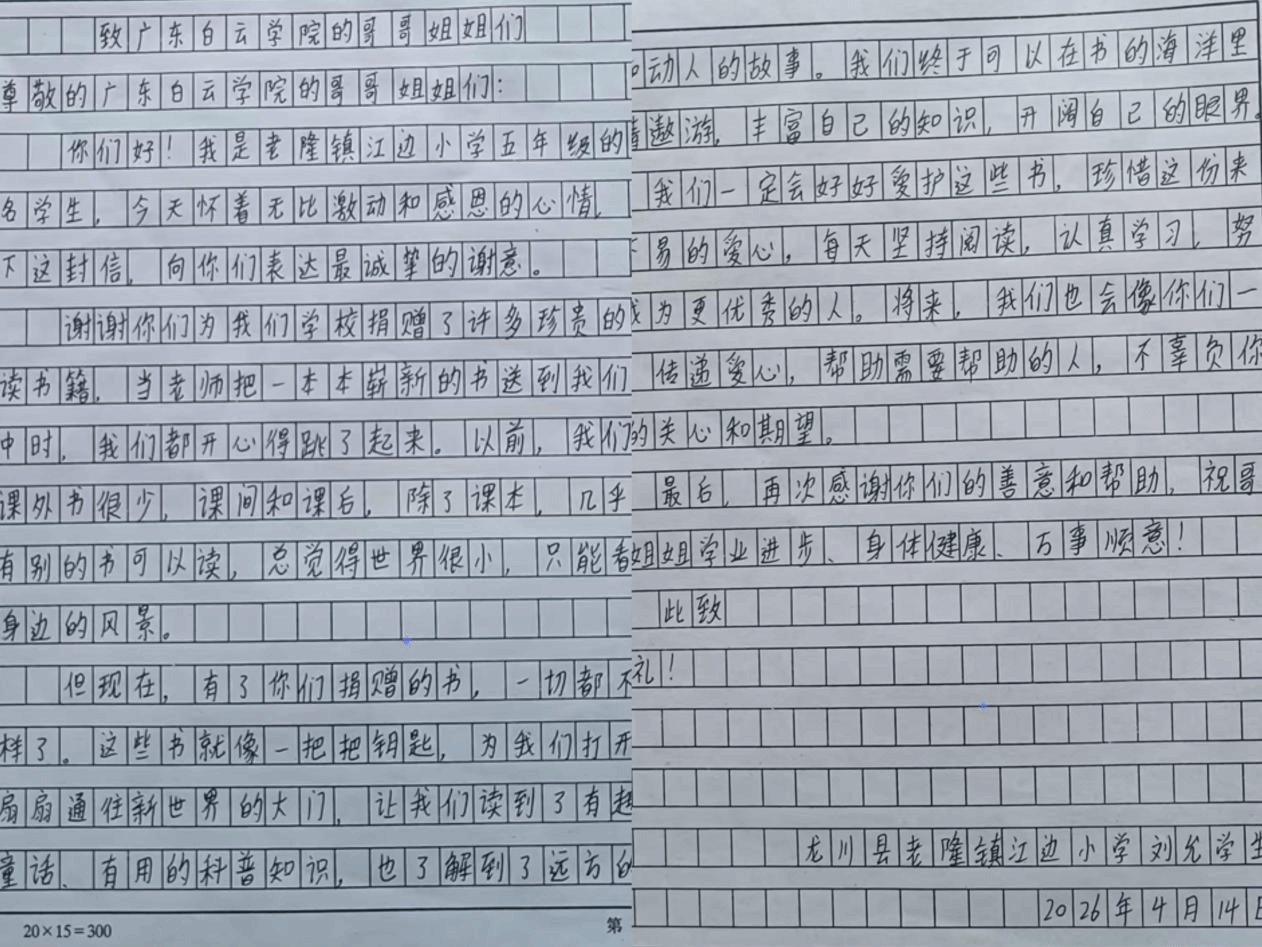 致广东白云学院的哥哥姐姐们
尊敬的广东白云学院的哥哥姐姐们：
你们好！我是老隆镇江边小学五年级的
名学生，今天怀着无比激动和感恩的心情，
下这封信，向你们表达最诚挚的谢意。
谢谢你们为我们学校捐赠了许多珍贵的
读书籍。当老师把一本本崭新的书送到我们
中时，我们都开心得跳了起来。以前，我们的
课外书很少，课间和课后，除了课本，几乎
有别的书可以读，总觉得世界很小，只能看
身边的风景。
但现在，有了你们捐赠的书，一切都不
样了。这些书就像一把把钥匙，为我们打开
扇扇通往新世界的大门，让我们读到了有趣
童话、有用的科普知识，也了解到了远方的
20×15=300
第
动人的故事。我们终于可以在书的海洋里
遨游，丰富自己的知识，开阔自己的眼界。
我们一定会好好爱护这些书，珍惜这份来
不易的爱心，每天坚持阅读，认真学习，努
成为更优秀的人。将来，我们也会像你们一
传递爱心，帮助需要帮助的人，不辜负你
的关心和期望。
最后，再次感谢你们的善意和帮助，祝哥
姐姐学业进步、身体健康、万事顺意！
此致
礼！
龙川县老隆镇江边小学刘允学生
2026年4月14日